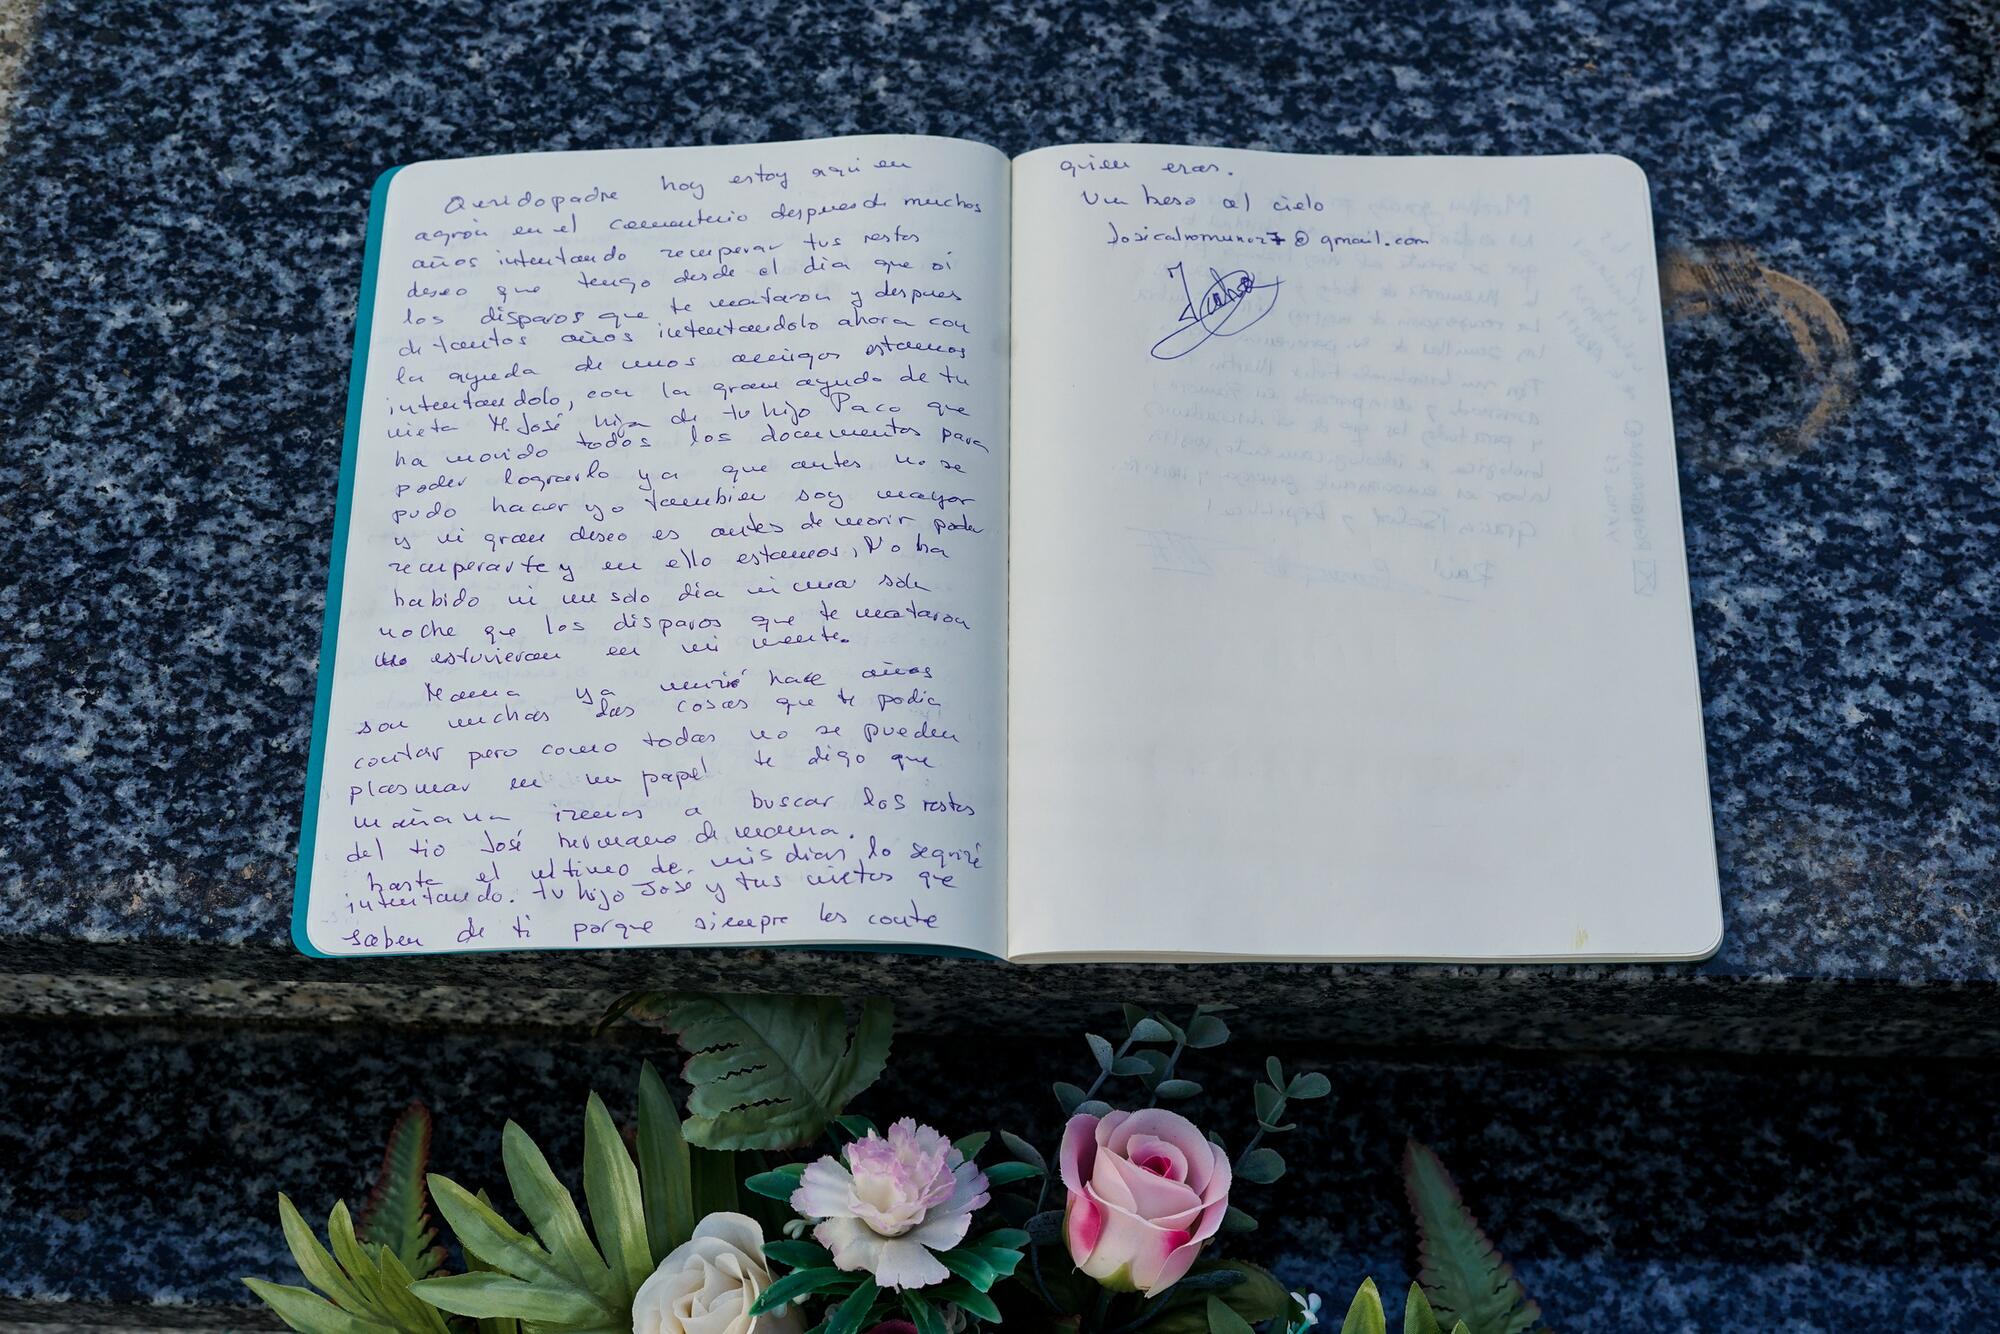 Querido padre hoy estoy aquí en
agrón en el cementerio despues de muchos
años intentando recuperar tus restos
deseo que tengo desde el dia que oí
los disparos que te mataron y despues
de tantos años intentandolo ahora con
la ayuda de unos amigos estamos
intentandolo, con la gran ayuda de tu
nieta Mª José hija de tu hijo Paco que
ha movido todos los documentos para
poder lograrlo ya que antes no se
pudo hacer yo tambien soy mayor
y mi gran deseo es antes de morir poder
recuperarte y en ello estamos, No ha
habido ni un solo dia ni una sola
noche que los disparos que te mataron
no estuvieran en mi mente.
Mama ya murió hace años
son muchas las cosas que te podia
contar pero como todas no se pueden
plasmar en un papel te digo que
mañana iremos a buscar los restos
del tio José hermano de mama.
hasta el ultimo de mis dias lo seguiré
intentando. tu hijo José y tus nietos que
saben de ti porque siempre les conte
quien eras.
Un beso al cielo
Josicalvomunoz7@gmail.com